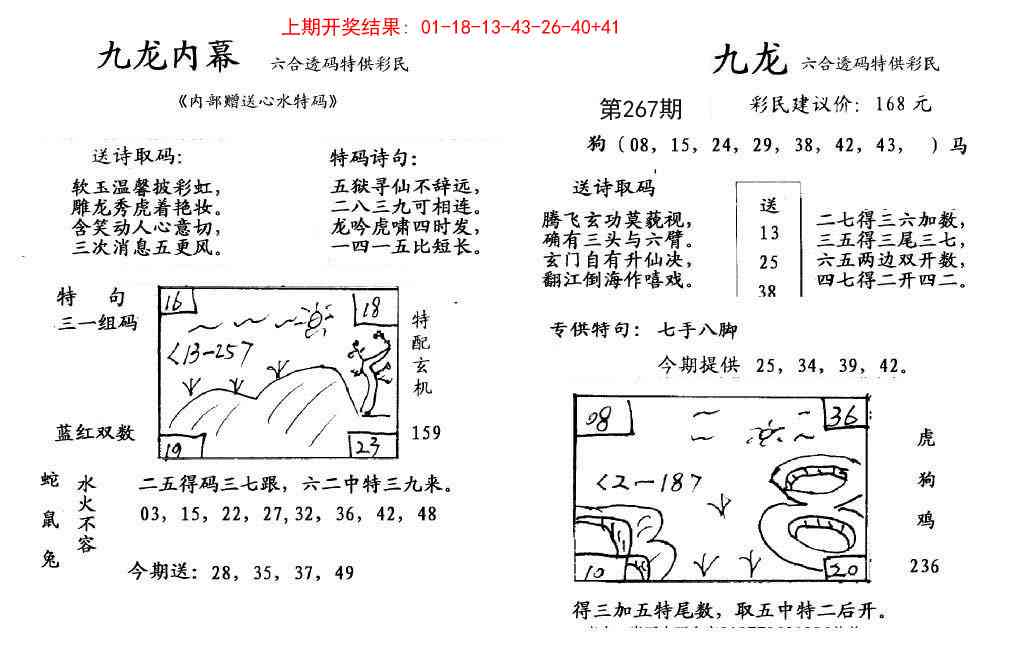 上期开奖结果：01-18-13-43-26-40+41
九龙内幕 六合透码特供彩民
《内部赠送心水特码》
送诗取码：
软玉温馨披彩虹，
雕龙秀虎着艳妆。
含笑动人心意切，
三次消息五更风。
特码诗句：
五狱寻仙不辞远，
二八三九可相连。
龙吟虎啸四时发，
一四一五比短长。
特 句
三一组码
蓝红双数
16
18
<13-25>
19
23
特配玄机
159
蛇鼠兔
水火不容
二五得码三七跟，六二中特三九来。
03，15，22，27，32，36，42，48
今期送：28，35，37，49
九龙 六合透码特供彩民
第267期
彩民建议价：168元
狗（08，15，24，29，38，42，43， ）马
送诗取码
腾飞玄功莫藐视，
确有三头与六臂。
玄门自有升仙决，
翻江倒海作嘻戏。
送
13
25
38
二七得三六加数，
三五得三尾三七，
六五两边双开数，
四七得二开四二。
专供特句：七手八脚
今期提供 25，34，39，42。
08
36
<2-18>
10
20
虎
狗
鸡
236
得三加五特尾数，取五中特二后开。